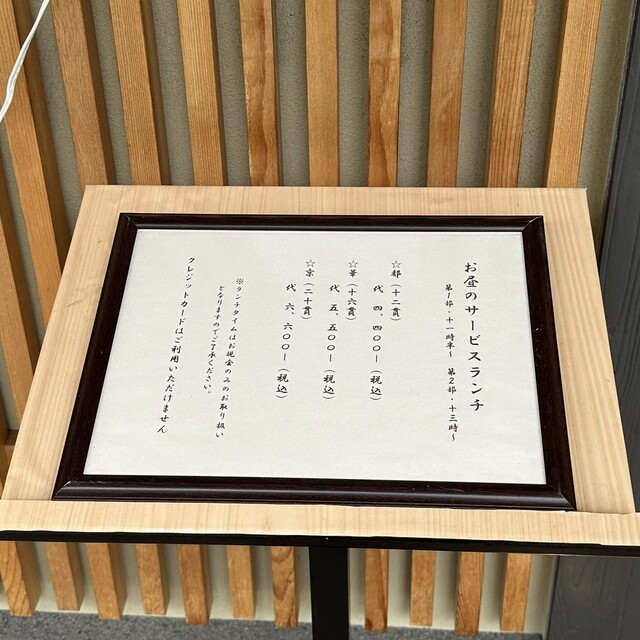 お昼のサービスランチ
第1部・十一時半〜　第2部・十三時〜
☆都(十二貫)
代 四、四〇〇ー(税込)
☆華(十六貫)
代 五、五〇〇ー(税込)
☆京(二十貫)
代 六、六〇〇ー(税込)
※ランチタイムはお現金のみのお取り扱い
となりますのでご了承ください。
クレジットカードはご利用いただけません